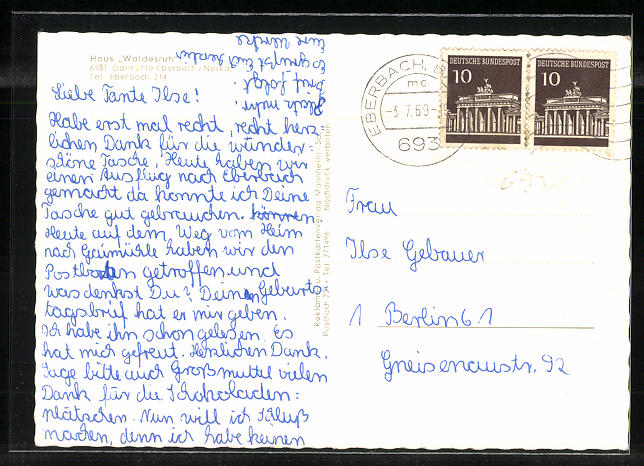 Haus „Waldesruh"
6931 Gaimühle-Eberbach/Neckar
Tel. Eberbach 214
Liebe Tante Ilse!
Habe erst mal recht, recht herz-
lichen Dank für die wunder-
schöne Tasche. Heute haben wir
einen Ausflug nach Eberbach
gemacht da konnte ich Deine
Tasche gut gebrauchen. können
Heute auf dem Weg vom Heim
nach Gaimühle haben wir den
Postboten getroffen und
was denkst Du? Deinen Geburts-
tagsbrief hat er mir geben.
Ich habe ihn schon gelesen. Es
hat mich gefreut. Herzlichen Dank.
Sage bitte auch Großmuttel vielen
Dank für die Schokoladen-
plätschen. Nun will ich Schluß
machen, denn ich habe keinen
Platz mehr.
Brief folgt
Es grüßt Euch
Eure
Reklame- u. Postkartenverlag Mannheim
Postfach 724 - Tel. 771496
Nachdruck verboten
EBERBACH,
mc
-3.7.69-
693
DEUTSCHE BUNDESPOST
10
DEUTSCHE BUNDESPOST
10
Frau
Ilse Gebauer
1 Berlin 61
Gneisenaustr. 92